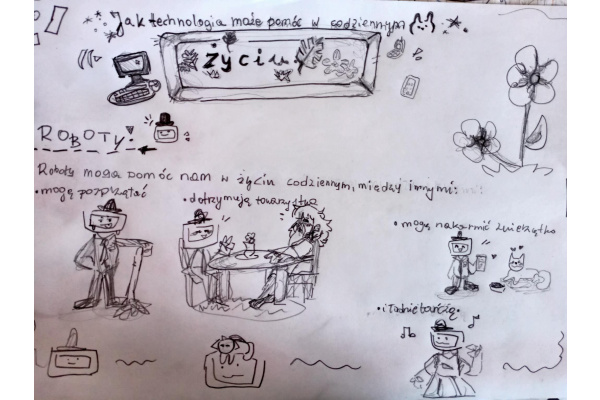 Jak technologia może pomóc w codziennym
życiu
ROBOTY!
Roboty mogą pomóc nam w życiu codziennym, między innymi:
• mogą posprzątać
• dotrzymują towarzystwa
• mogą nakarmić zwierzątko